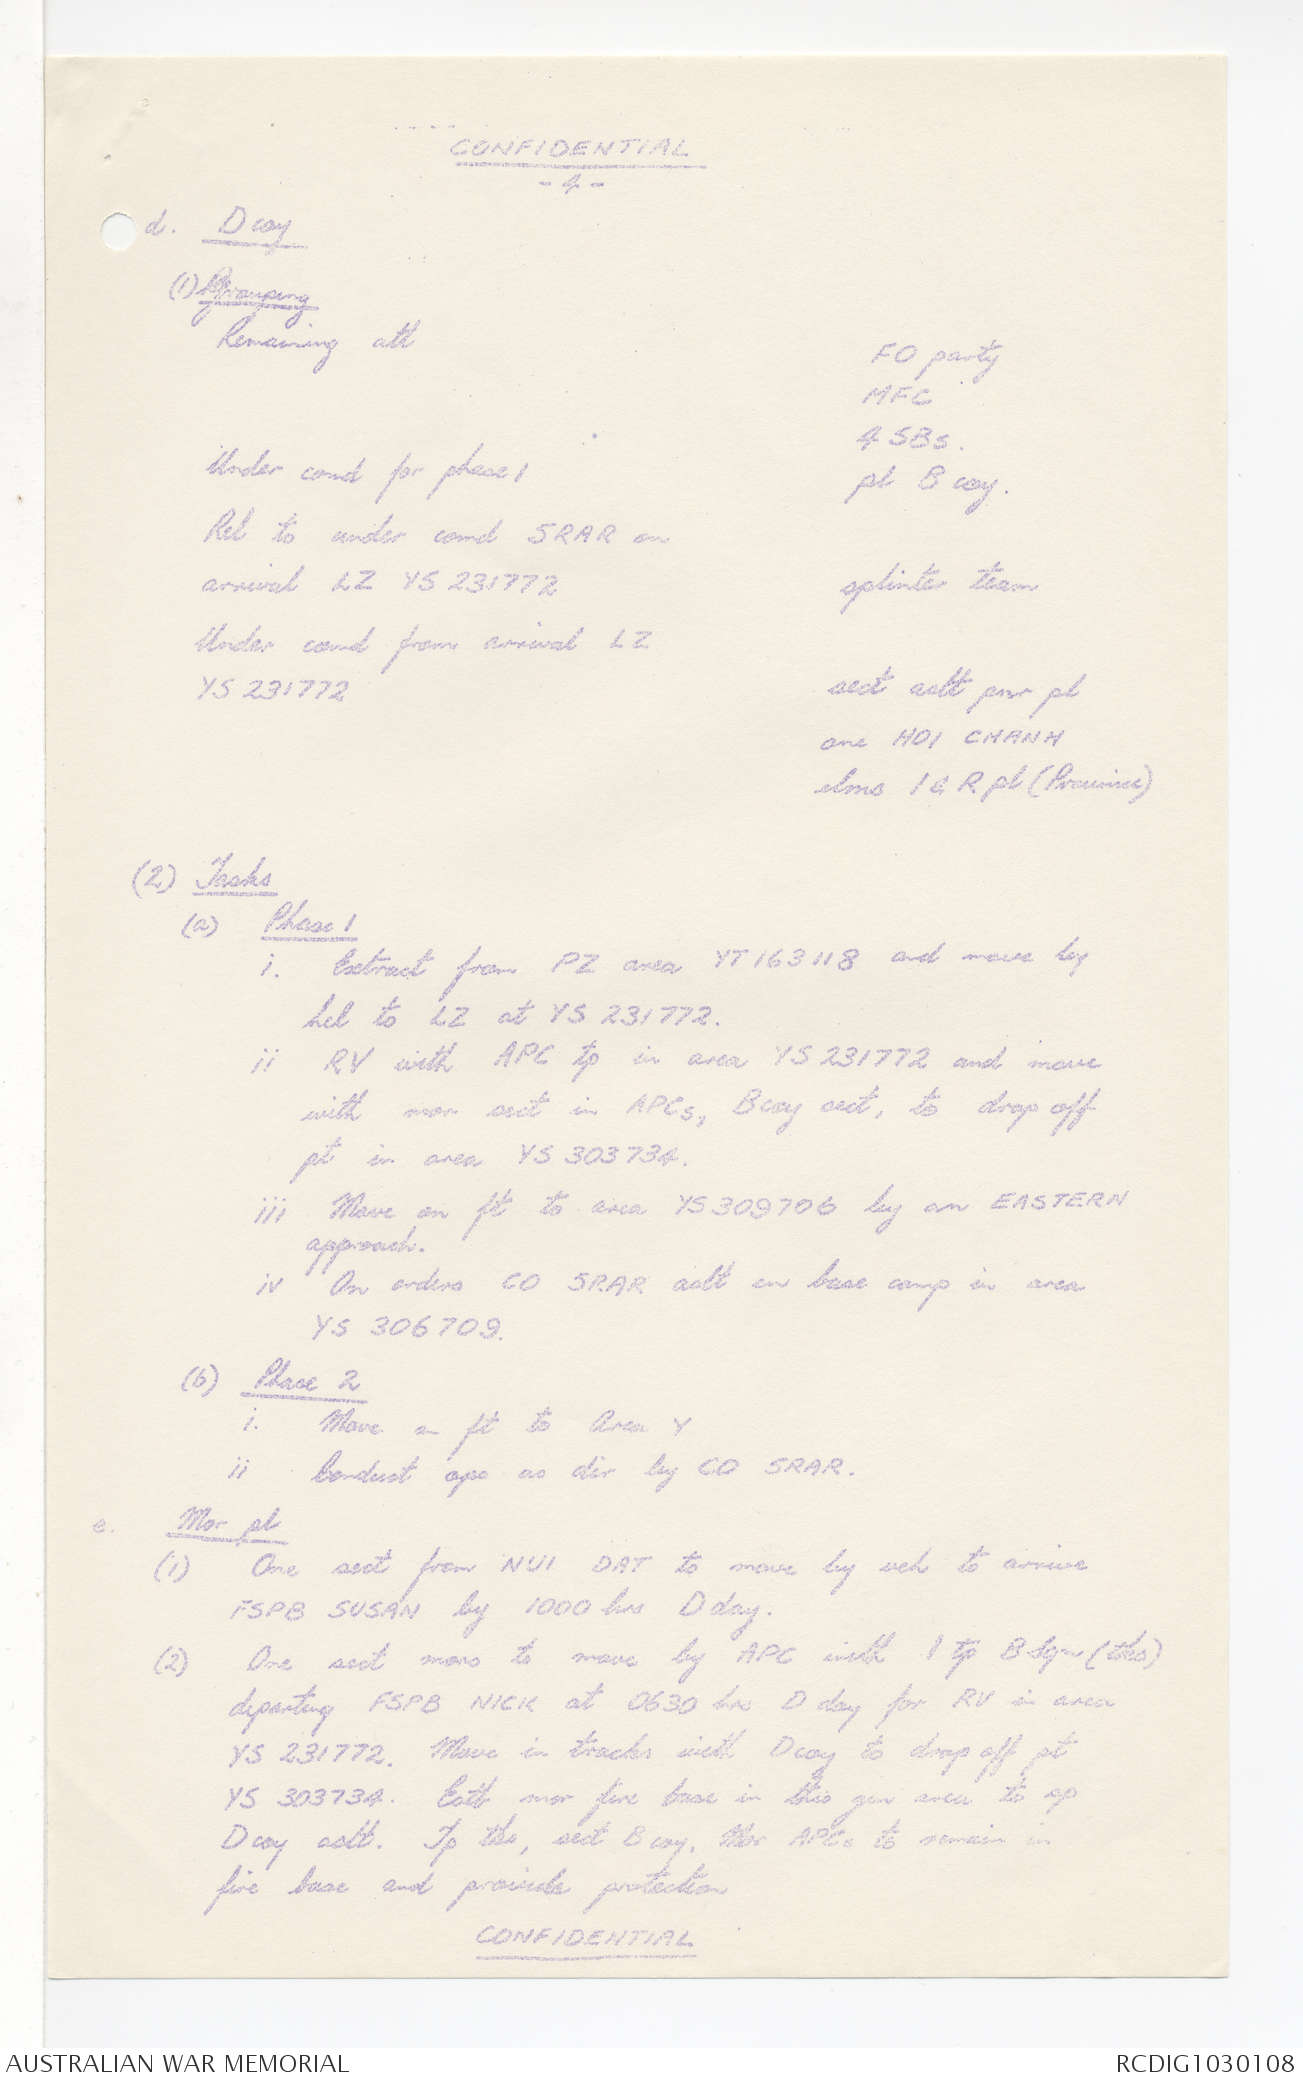 CONFIDENTIAL
- 4 -
d. D coy
(1) Grouping
Remaining att
FO party
MFC
4 SBs.
Under comd for phase 1
pl B coy.
Rel to under comd 5RAR on
arrival LZ YS 231772
splinter team
Under comd from arrival LZ
YS 231772
sect aslt pnr pl
one HOI CHANH
elms I & R pl (Province)
(2) Tasks
(a) Phase 1
i. Extract from PZ area YT 163118 and move by
hel to LZ at YS 231772.
ii RV with APC tp in area YS 231772 and move
with mor sect in APCs, B coy sect, to drop off
pt in area YS 303734.
iii Move on ft to area YS 309706 by an EASTERN
approach.
iv On orders CO 5RAR aslt en base camp in area
YS 306709.
(b) Phase 2
i. Move on ft to Area Y
ii Conduct ops as dir by CO 5RAR.
e. Mor pl
(1) One sect from NUI DAT to move by veh to arrive
FSPB SUSAN by 1000 hrs D day.
(2) One sect mors to move by APC with 1 tp B Sqn (tks)
departing FSPB NICK at 0630 hrs D day for RV in area
YS 231772. Move in tracks with D coy to drop off pt
YS 303734. Estb mor fire base in this gen area to sp
D coy aslt. Tp tks, sect B coy, Mor APCs to remain in
fire base and provide protection
CONFIDENTIAL
AUSTRALIAN WAR MEMORIAL
RCDIG1030108